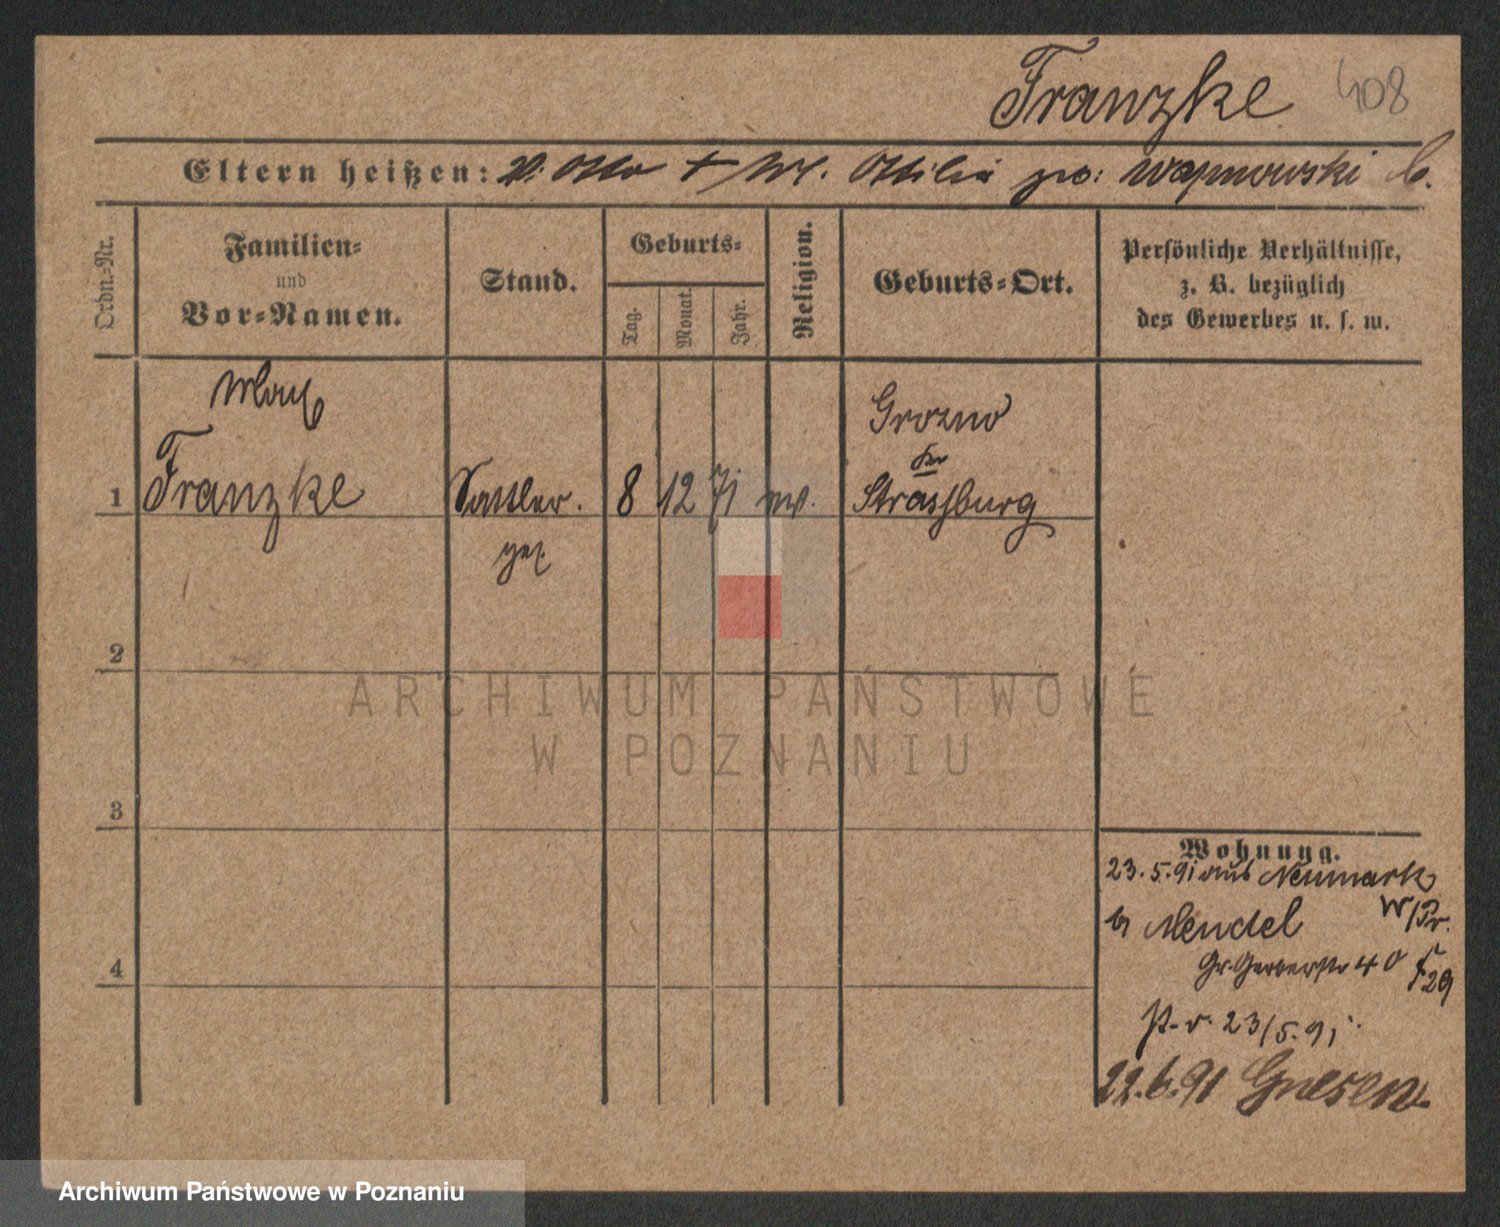 Franzke 408
Eltern heißen: V. Otto + M. Ottilie
Ordn.-Nr.
Familien-
und
Vor-Namen.
Stand.
Geburts-
Tag.
Monat.
Jahr.
Religion.
Geburts-Ort.
Persönliche Verhältnisse,
z. B. bezüglich
des Gewerbes u. s. w.
Max
Franzke
1
Sattler.
ges.
8 12 71
Strassburg
2
3
4
Wohnung.
23.5.91 aus Neumark
W/Pr.
b Mendel
Gr. Gerberstr 40
P. v. 23/5.91
22.6.91 Gnesen.
ARCHIWUM PAŃSTWOWE
W POZNANIU
Archiwum Państwowe w Poznaniu